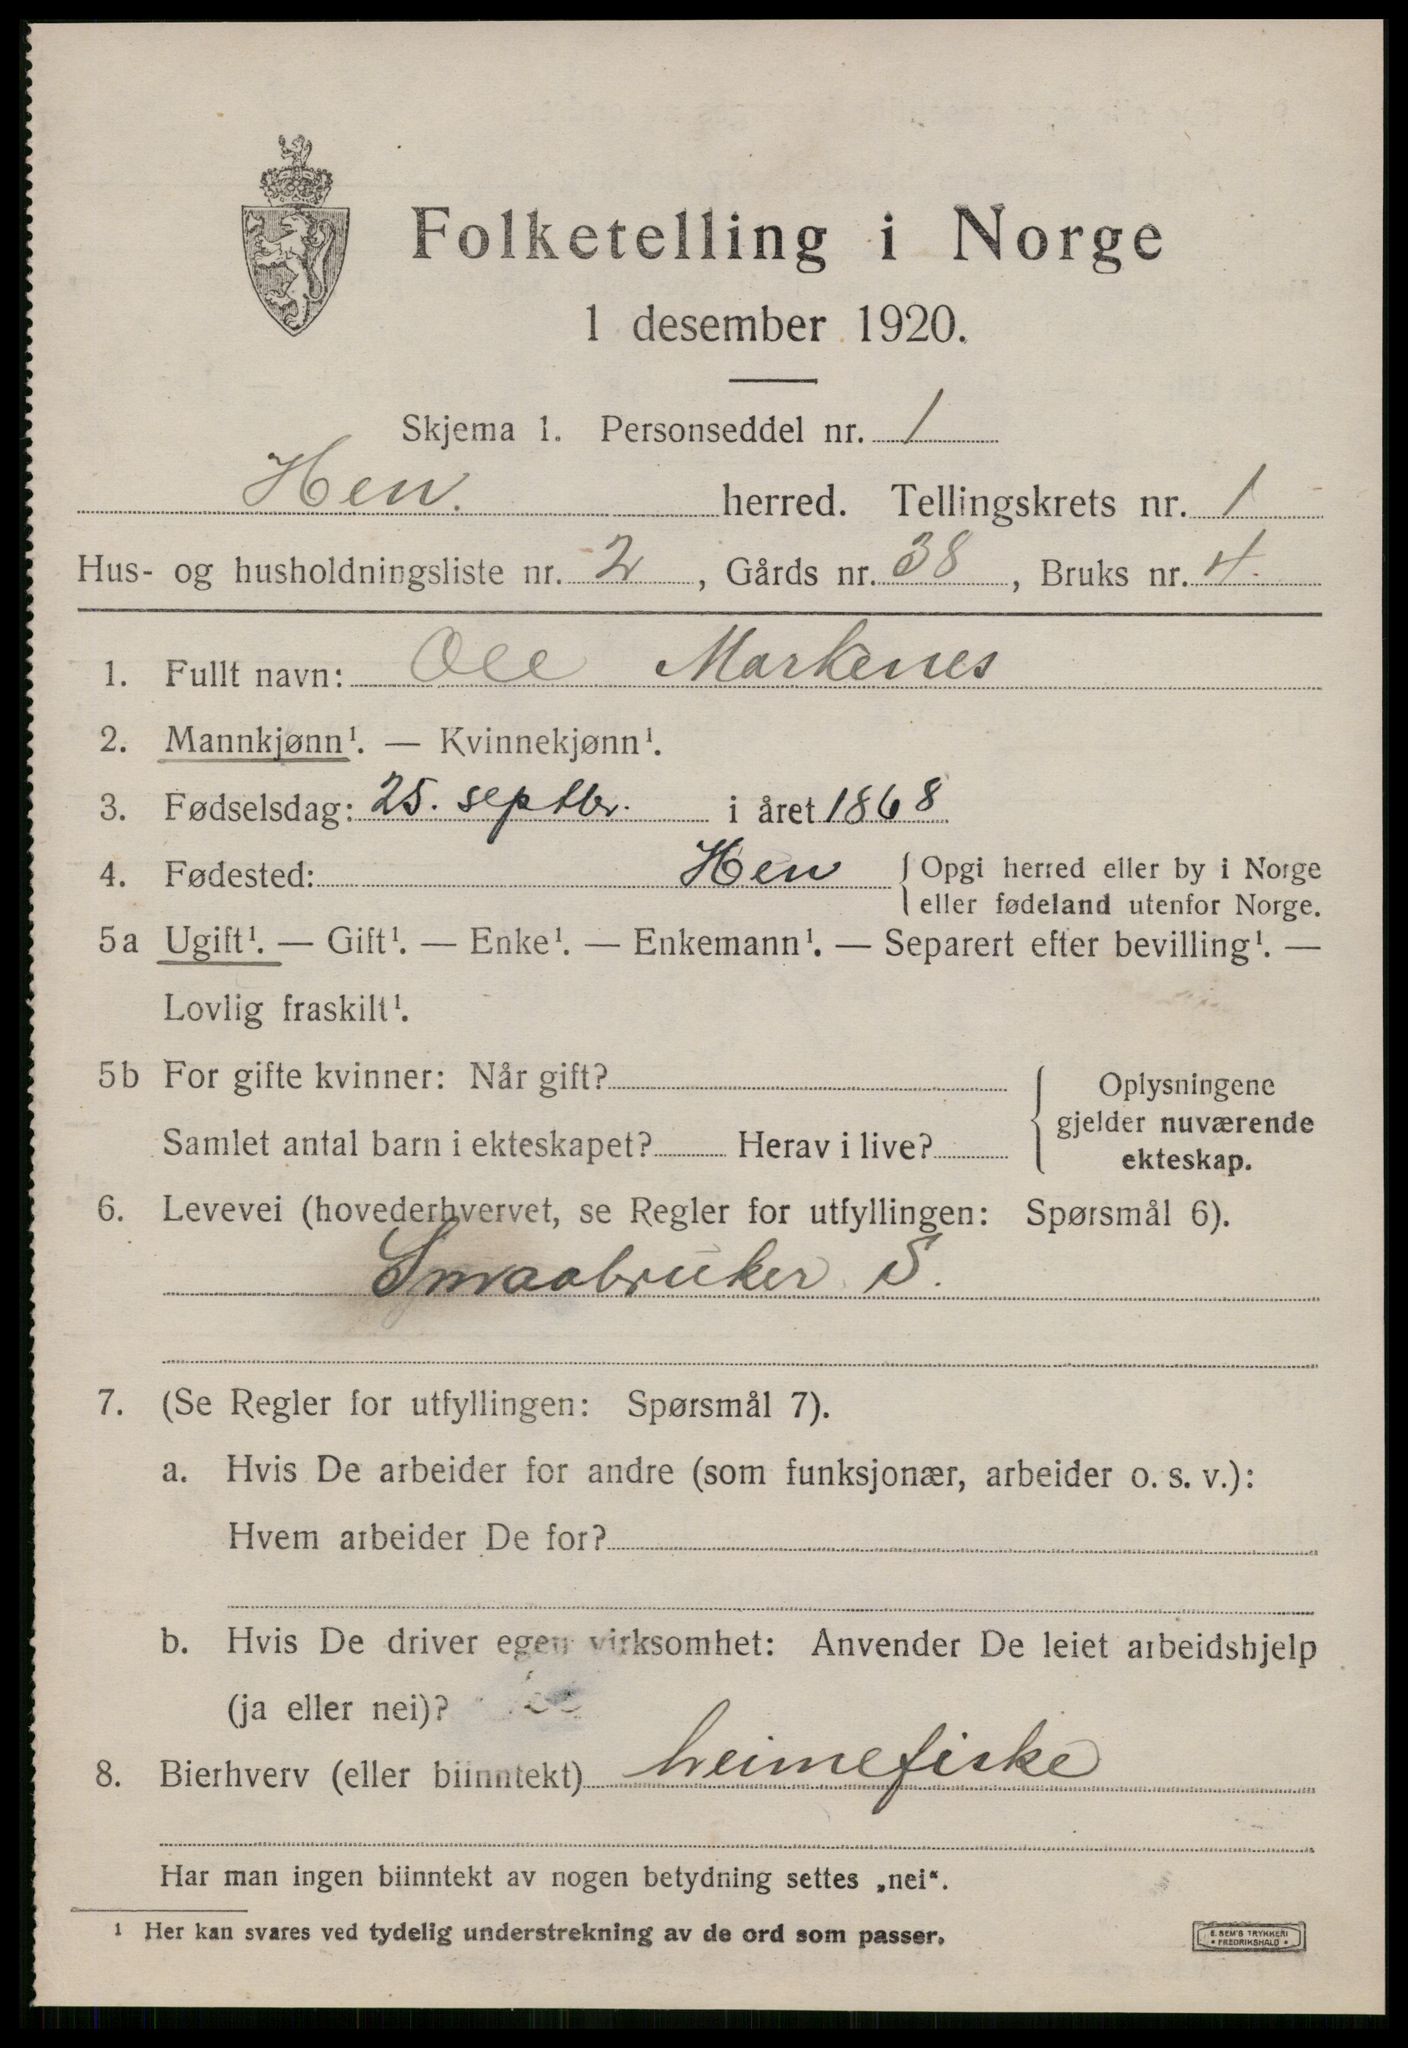 Folketelling i Norge
1 desember 1920.
Skjema 1. Personseddel nr. 1
Hen. herred. Tellingskrets nr. 1
Hus- og husholdningsliste nr. 2, Gårds nr. 38, Bruks nr. 4
1. Fullt navn: Ole Markenes
2. Mannkjønn¹. — Kvinnekjønn¹.
3. Fødselsdag: 25. septbr. i året 1868
4. Fødested: Hen { Opgi herred eller by i Norge
eller fødeland utenfor Norge.
5a Ugift¹. — Gift¹. — Enke¹. — Enkemann¹. — Separert efter bevilling¹. —
Lovlig fraskilt¹.
5b For gifte kvinner: Når gift?
Samlet antal barn i ekteskapet? Herav i live?
{ Oplysningene
gjelder nuværende
ekteskap.
6. Levevei (hovederhvervet, se Regler for utfyllingen: Spørsmål 6).
Smaabruker S.
7. (Se Regler for utfyllingen: Spørsmål 7).
a. Hvis De arbeider for andre (som funksjonær, arbeider o. s. v.):
Hvem arbeider De for?
b. Hvis De driver egen virksomhet: Anvender De leiet arbeidshjelp
(ja eller nei)?
8. Bierhverv (eller biinntekt) heimefiske
Har man ingen biinntekt av nogen betydning settes „nei“.
¹ Her kan svares ved tydelig understrekning av de ord som passer.
E. SEM'S TRYKKERI
• FREDRIKSHALD •